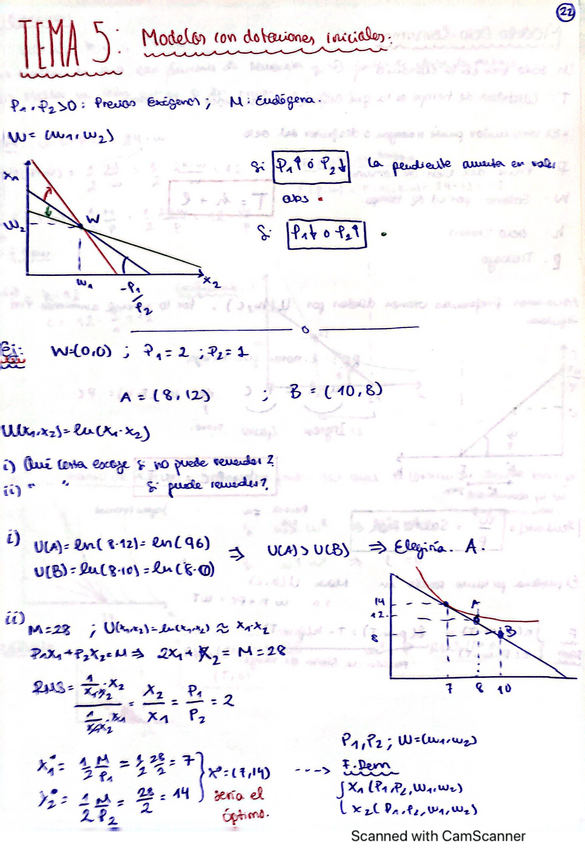 22
TEMA 5: Modelos con dotaciones iniciales.
P₁, P₂ > 0: Precios Exógenos; M: Endógena.
W = (w₁, w₂)
x₁
W
w₂
w₁
x₂
-P₁/P₂
Si P₁↑ ó P₂↓ la pendiente aumenta en valor
abs.
Si P₁↓ ó P₂↑ .
Ej: W=(0,0) ; P₁=2 ; P₂=1
A = (8,12) ; B = (10,8)
U(x₁,x₂)=ln(x₁·x₂)
i) Qué cesta escoge si no puede revender?
ii) " " Si puede revender?
i) U(A)=ln(8·12)=ln(96) ⇒ U(A)>U(B) ⇒ Elegiría A.
U(B)=ln(8·10)=ln(80)
14
12
8
A
B
7 8 10
ii) M=28 ; U(x₁,x₂)=ln(x₁·x₂) ≈ x₁·x₂
P₁x₁+P₂x₂=M ⇒ 2x₁+x₂=M=28
RMS = (1/(x₁x₂)·x₂)/(1/(x₁x₂)·x₁) = x₂/x₁ = P₁/P₂ = 2
x₁* = 1/2 M/P₁ = 1/2 28/2 = 7
x₂* = 1/2 M/P₂ = 28/2 = 14
x*=(7,14)
sería el
óptimo.
P₁,P₂; W=(w₁,w₂)
---> F. Dem
x₁(P₁,P₂,w₁,w₂)
x₂(P₁,P₂,w₁,w₂)
Scanned with CamScanner